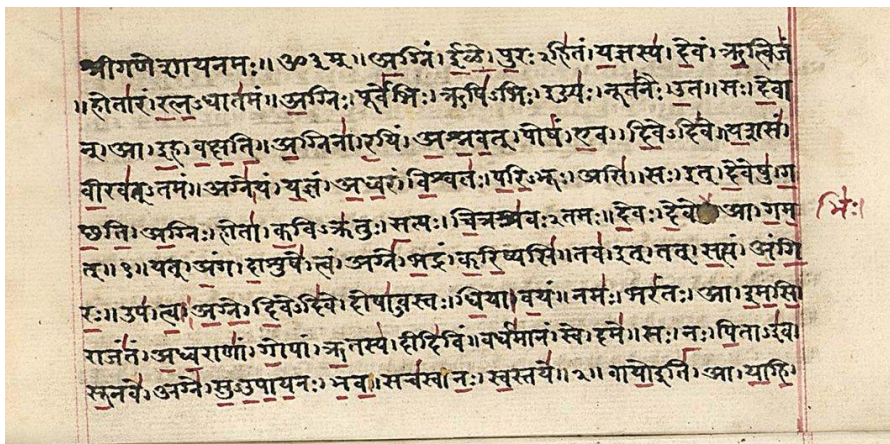 श्रीगणेशायनमः॥ ॐ३म्॥ अ॒ग्निं। ई॒ळे॒। पु॒रःऽहि॑तं। य॒ज्ञस्य॑। दे॒वं। ऋ॒त्विजं॑
॥होता॑रं। र॒त्न॒ऽधात॑मं॥ अ॒ग्निः। पूर्वे॑भिः। ऋषि॑ऽभिः। ईड्यः॑। नूत॑नैः। उ॒त। सः। दे॒वा
न्। आ। इ॒ह। व॒क्ष॒ति॒॥ अ॒ग्निना॑। र॒यिं। अ॒श्न॒व॒त्। पोषं॑। ए॒व। दि॒वेऽदि॑वे॥ य॒शसं॑।
वी॒रव॑त्ऽतमं॥ अग्ने॑। यं। य॒ज्ञं। अ॒ध्व॒रं। वि॒श्वतः॑। प॒रि॒ऽभूः। असि॑॥ सः। इत्। दे॒वेषु॑। ग॒
च्छ॒ति॒। अ॒ग्निः। होता॑। क॒विऽक्र॑तुः। स॒त्यः। चि॒त्रश्र॑वःऽतमः॥ दे॒वः। दे॒वे आ। ग॒म॒ भिः॑।
त्॥१॥ यत्। अं॒ग। दा॒शुषे॑। त्वं। अग्ने॑। भ॒द्रं। क॒रि॒ष्यसि॑॥ तव॑। इत्। तत्। स॒त्यं। अं॒गि॒
रः॒॥ उप॑। त्वा॒। अ॒ग्ने॒। दि॒वेऽदि॑वे। दोषा॑ऽवस्तः। धि॒या। व॒यं॥ नमः॑। भरं॑तः। आ। इ॒म॒सि॒
राजं॑तं। अ॒ध्व॒राणां॑। गो॒पां। ऋ॒तस्य॑। दीदि॑विं॥ वर्ध॑मानं। स्वे। दमे॑॥ सः। नः॒। पि॒ताऽइ॑व
सू॒नवे॑। अग्ने॑। सु॒ऽउ॒पा॒य॒नः। भ॒व॒॥ सच॑स्व। नः॒। स्व॒स्तये॑॥२॥ वायो॒ इति॑। आ। या॒हि॒।